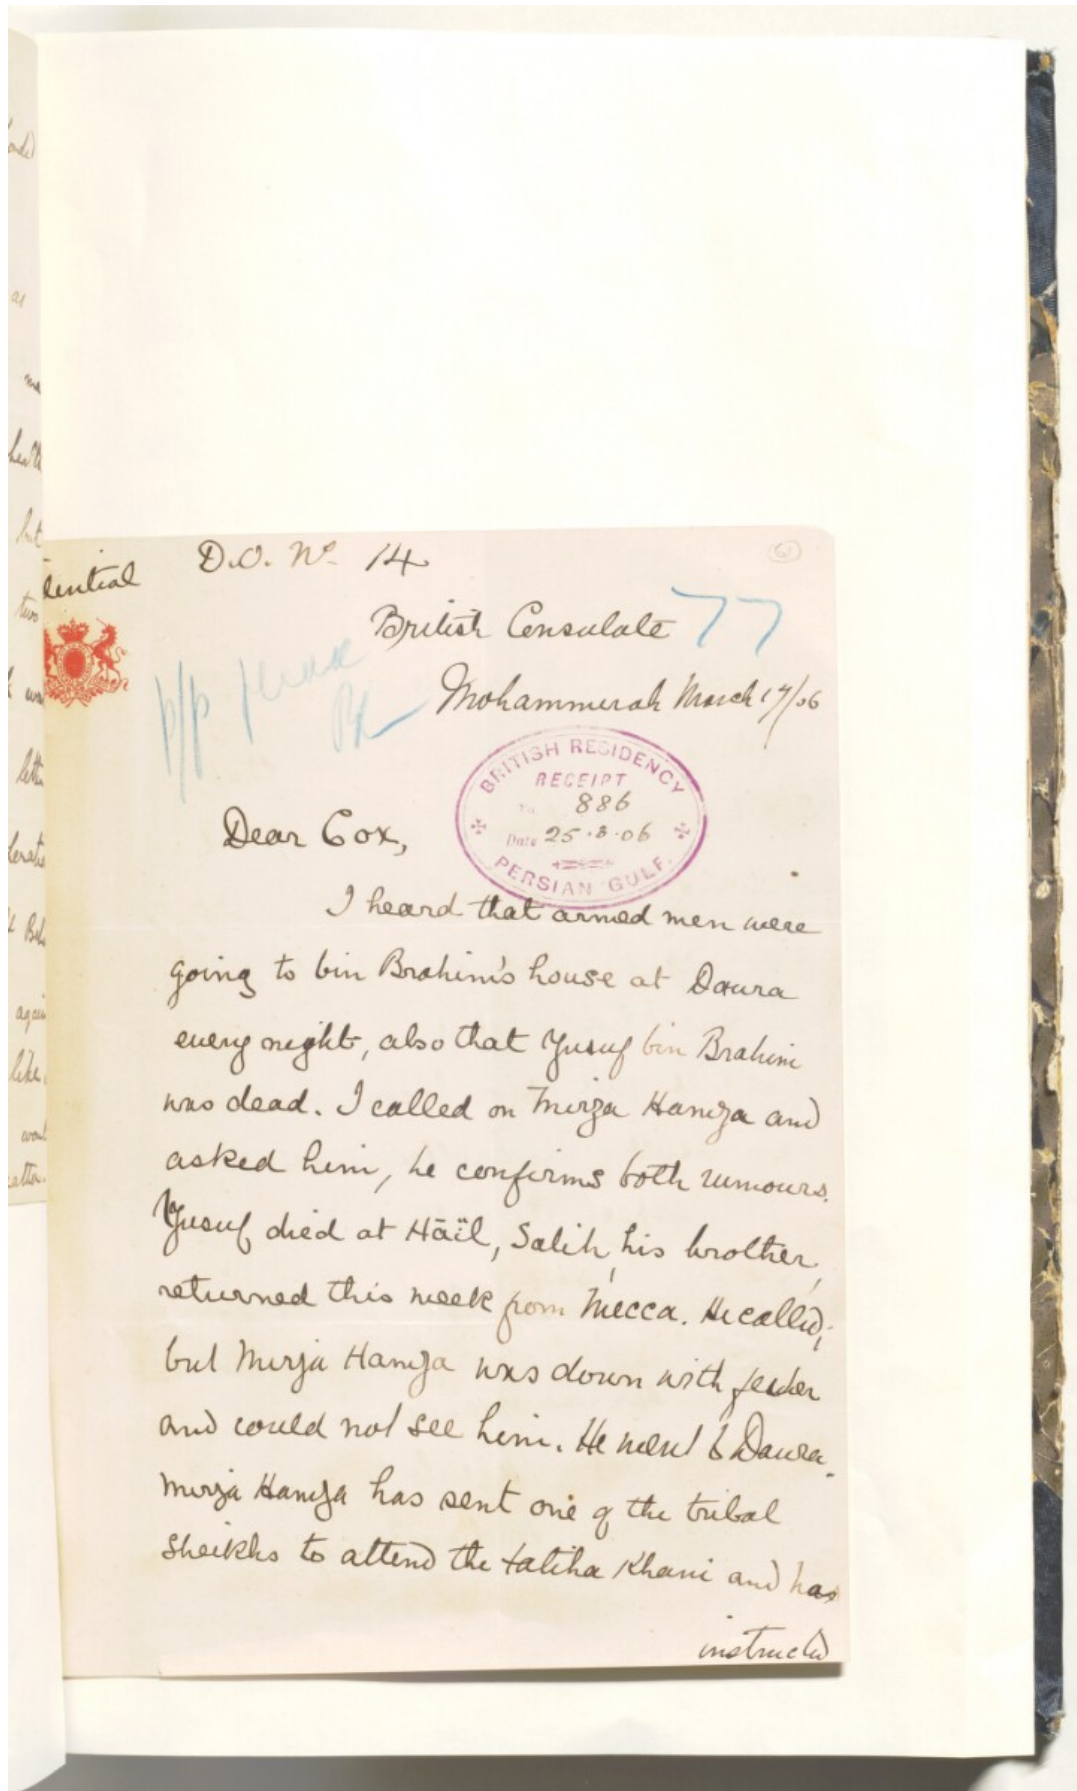 dential
D.O. No 14
61
British Consulate
77
Mohammerah March 17/06
p/p please
BRITISH RESIDENCY
RECEIPT
No 886
Date 25.3.06
PERSIAN GULF.
Dear Cox,
I heard that armed men were
going to bin Brahim's house at Daura
every night, also that Yusuf bin Brahim
was dead. I called on Mirza Hamza and
asked him, he confirms both rumours.
Yusuf died at Hāïl, Salih, his brother,
returned this week from Mecca. He called;
but Mirza Hamza was down with fever
and could not see him. He went to Daura.
Mirza Hamza has sent one of the tribal
sheikhs to attend the fatiha Khani and has
instructed